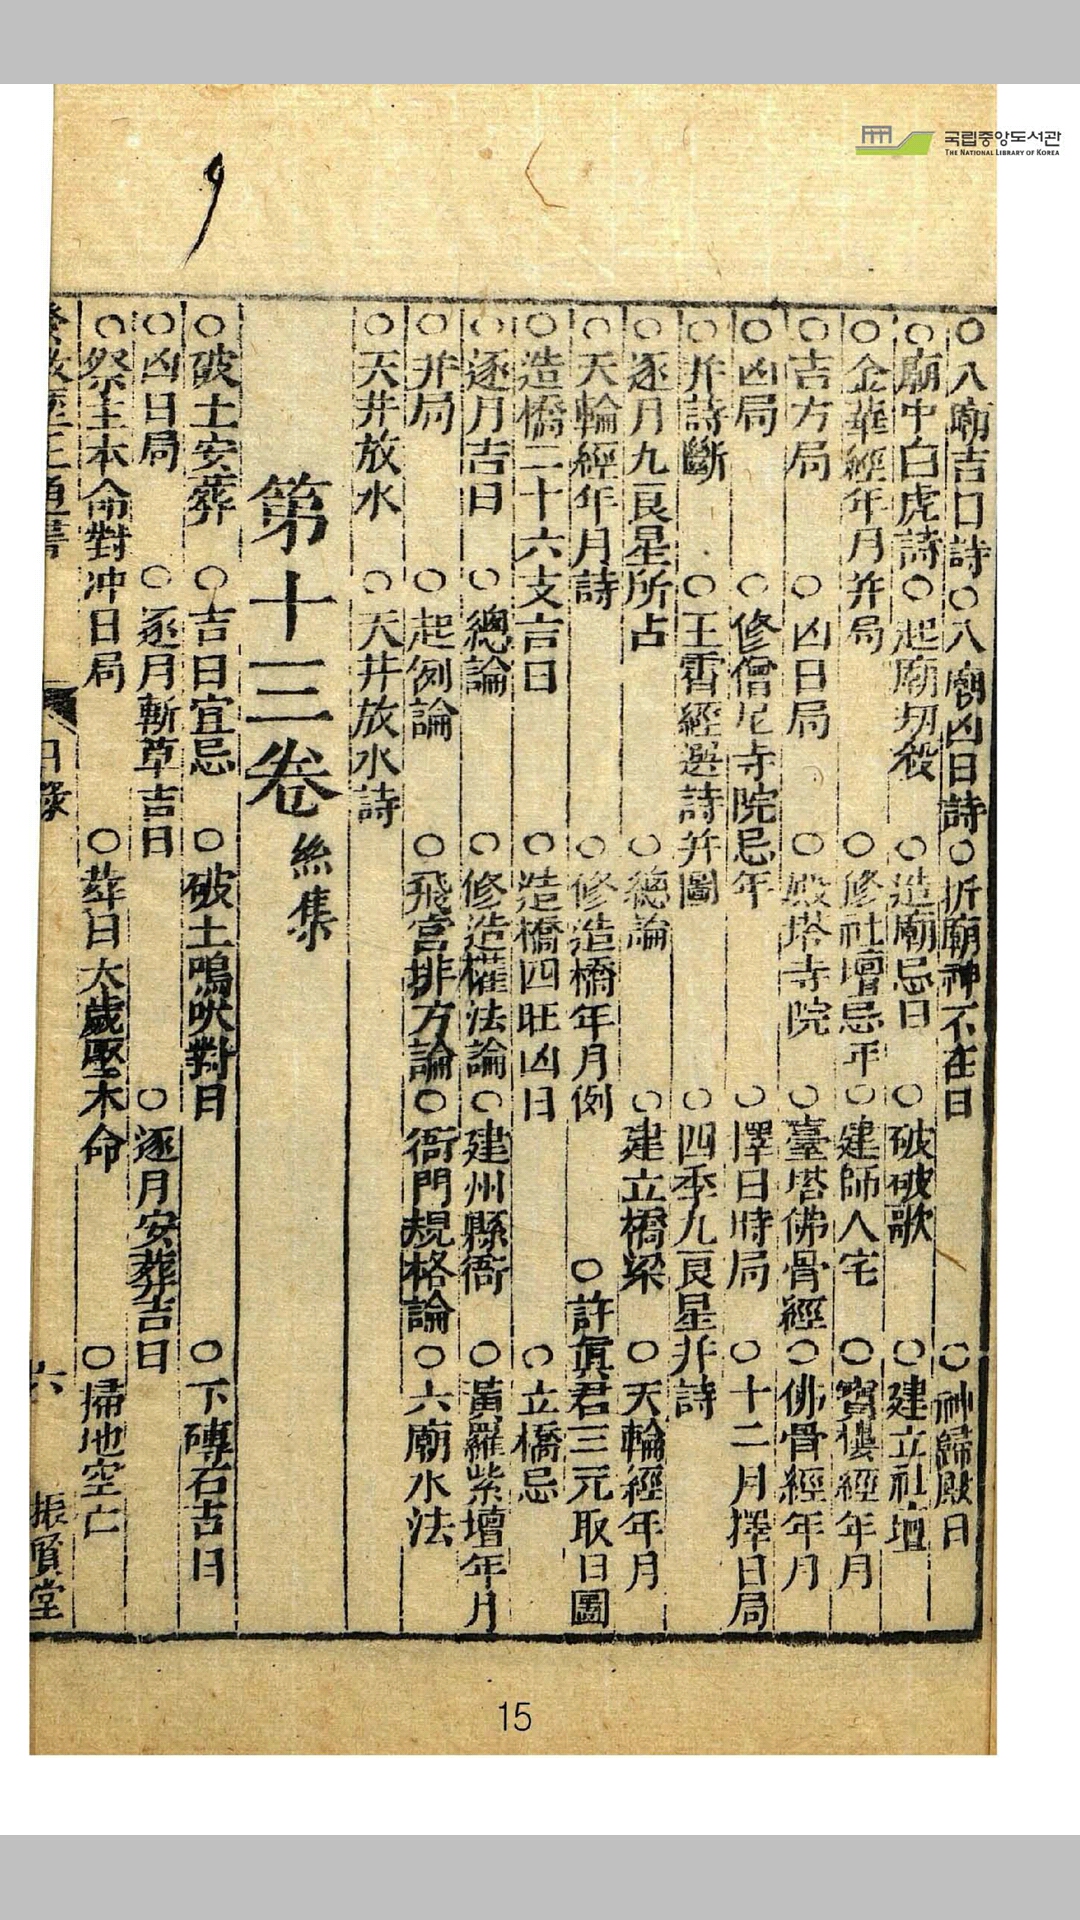 국립중앙도서관
THE NATIONAL LIBRARY OF KOREA
○八廟吉日詩○八廟凶日詩○折廟神不在日○神歸殿日
○廟中白虎詩○起廟刼殺○造廟忌日○破破歌○建立社壇
○金華經年月并局○修社壇忌年○建師人宅○寳樓經年月
○吉方局○凶日局○殿塔寺院○臺塔佛骨經○佛骨經年月
○凶局○修僧尼寺院忌年○擇日時局○十二月擇日局
○并詩斷○王霄經選詩并圖○四季九良星并詩
○逐月九良星所占○總論○建立橋梁○天輪經年月
○天輪經年月詩○修造橋年月例○許眞君三元取日圖
○造橋二十六支吉日○造橋四旺凶日○立橋忌
○逐月吉日○總論○修造權法論○建州縣衙○黃羅紫壇年月
○并局○起例論○飛宮排方論○衙門規格論○六廟水法
○天井放水○天井放水詩
第十三卷 絲集
○破土安葬○吉日宜忌○破土鳴吠對日○下磚石吉日
○凶日局○逐月斬草吉日○逐月安葬吉日
○祭主本命對冲日局○葬日太歲壓本命○掃地空亡
目錄 六 振賢堂
15